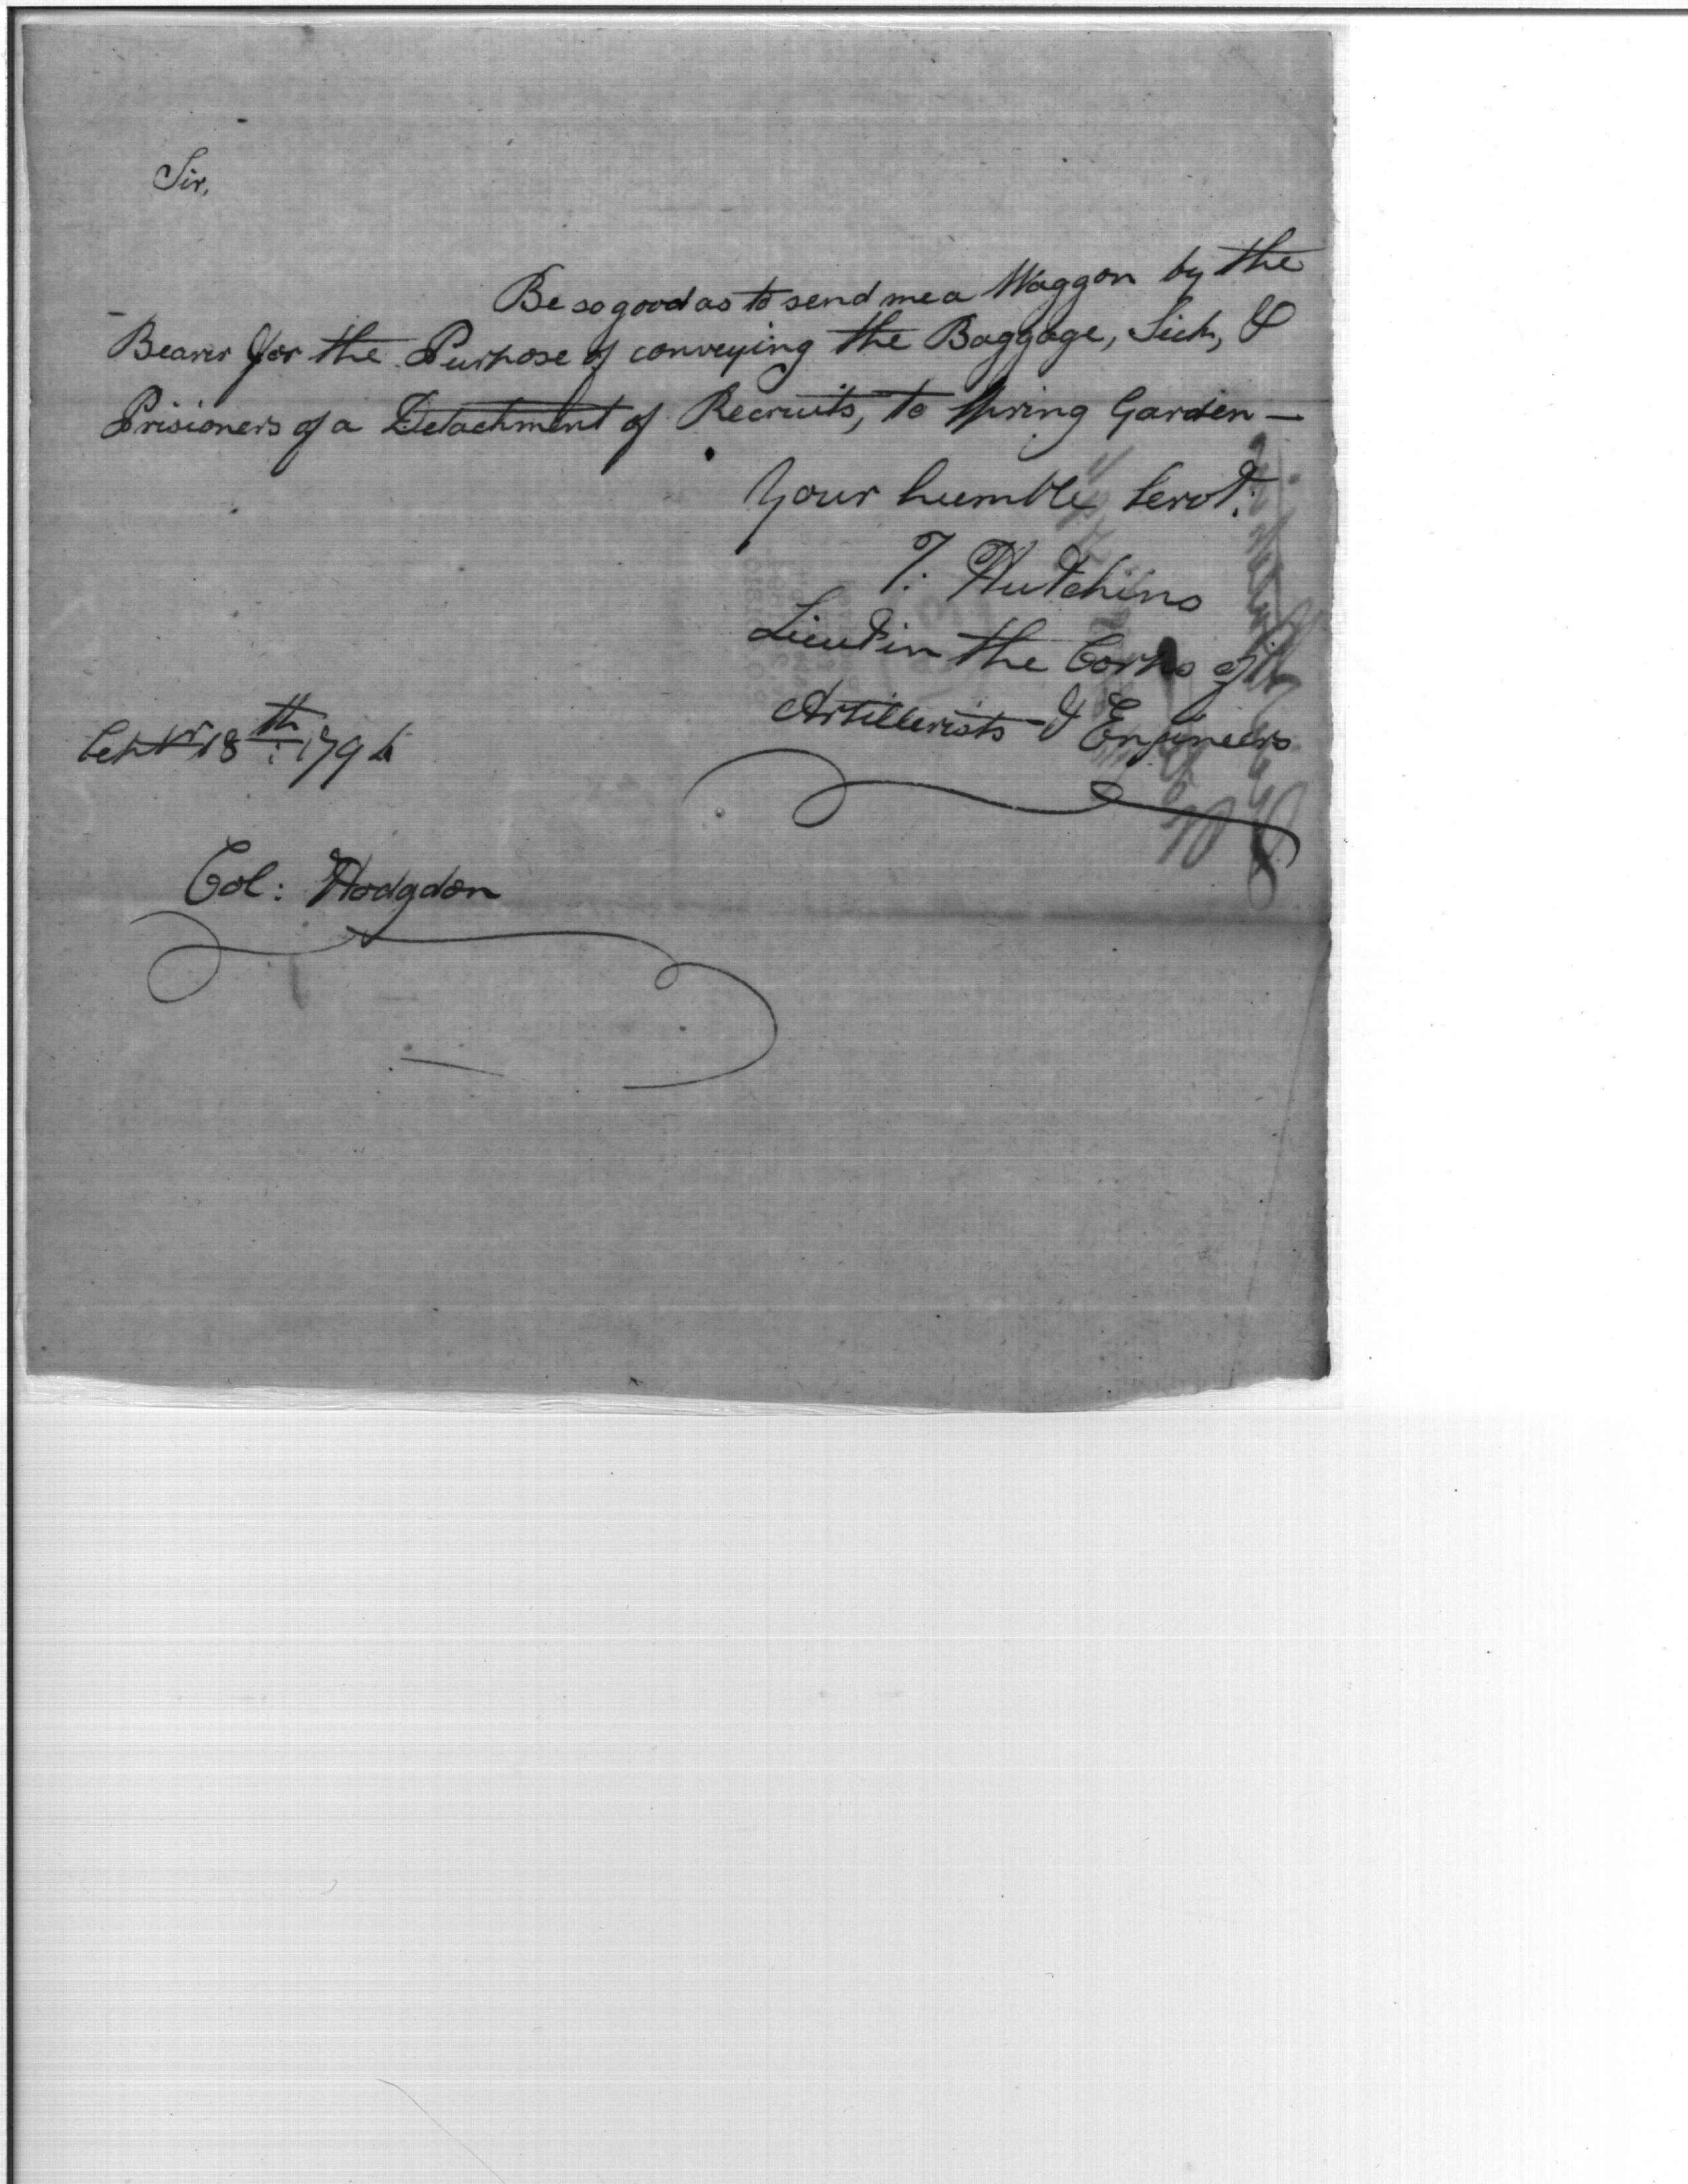 Sir,
Be so good as to send me a Waggon by the
Bearer for the Purpose of conveying the Baggage, Sick, &
Prisioners of a Detachment of Recruits, to Spring Garden —
Your humble Servt.
T: Hutchins
Lieut in the Corps of
Artillerists & Engineers
Septr 18th: 1794
Col: Hodgdon